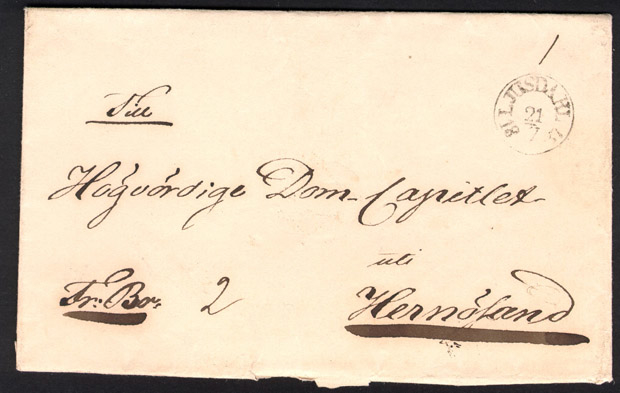 1
LJUSDAHL
21
7
18
Till
Högvördige Dom-Capitlet
uti
Fr: Br: 2 Hernösand